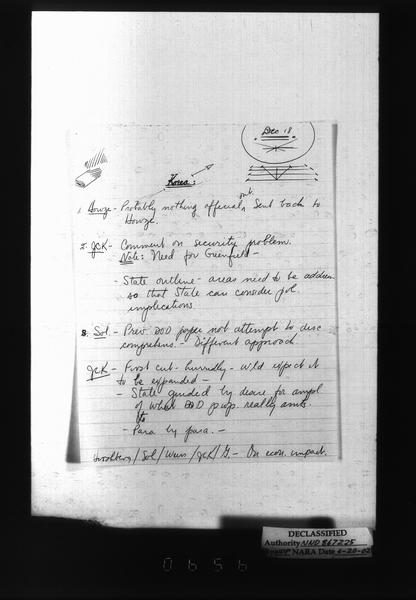 Dec 18
Korea:
1. Howze - Probably nothing official, out. Sent back to
Howze.
2. JCK - Comment on security problem.
Note: Need for Greenfield -
State outline - areas need to be
so that State can consider pol.
implications.
3. Sol. - Prev. DOD paper not attempt to disc
comprehens. - Different approach
JCK - First cut - hurriedly - wld expect it
to be expanded -
- State guided by desire for
of what DOD really
- Para by para. -
/ Sol / / JCK / G. - On econ. impact.
DECLASSIFIED
Authority NND 867225
NARA Date 6-20-02
0656